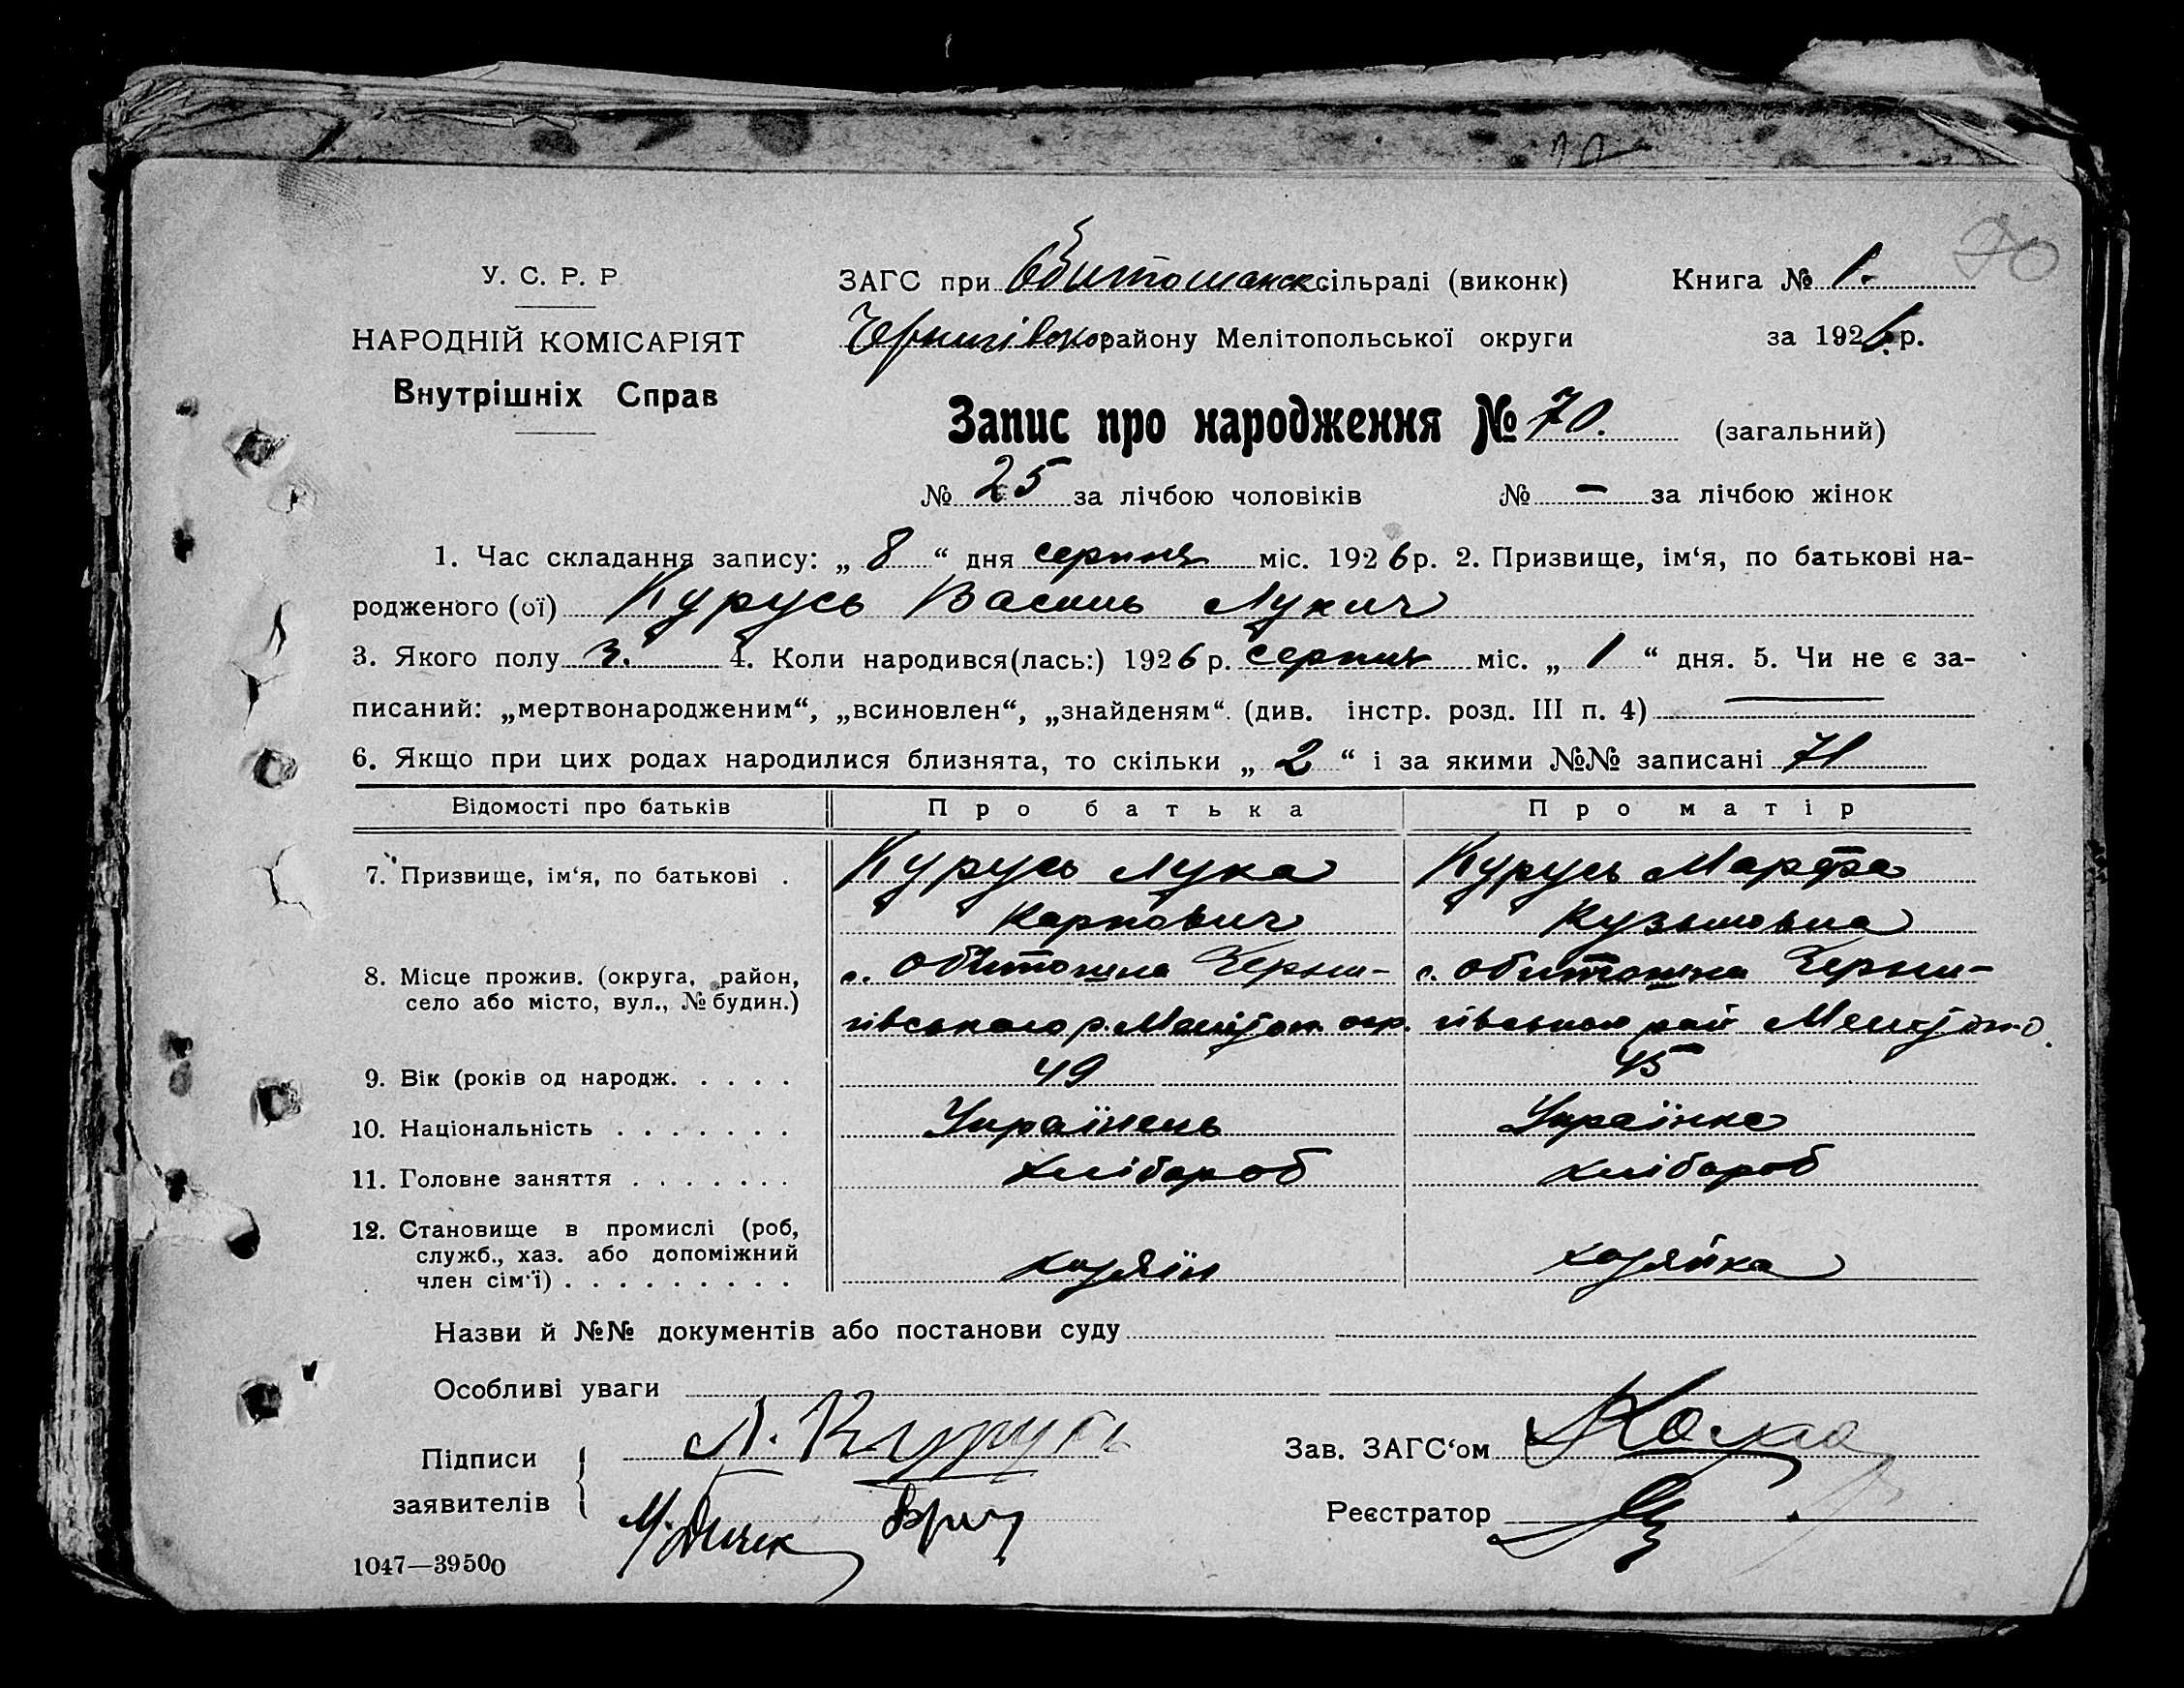 70
У. С. Р. Р
НАРОДНІЙ КОМІСАРІЯТ
Внутрішніх Справ
ЗАГС при Обитошанск сільраді (виконк) Книга № 1.
Чернигівско району Мелітопольської округи за 1926 р.
Запис про народження № 70. (загальний)
№ 25 за лічбою чоловіків № — за лічбою жінок
1. Час складання запису: „ 8 “ дня серпня міс. 1926 р. 2. Призвище, ім‘я, по батькові на-
родженого (ої) Курусь Василь Лукич
3. Якого полу ч. 4. Коли народився(лась:) 1926 р. серпня міс. „ 1 “ дня. 5. Чи не є за-
писаний: „мертвонародженим“, „всиновлен“, „знайденям“. (див. інстр. розд. III п. 4) —
6. Якщо при цих родах народилися близнята, то скільки „ 2 “ і за якими №№ записані 71
Відомості про батьків Про батька Про матір
7. Призвище, ім‘я, по батькові . Курусь Лука Курусь Марфа
Карпович Кузьмовна
8. Місце прожив. (округа, район, с. Обитошна Черни- с. Обиточна Черни-
село або місто, вул., № будин.)
гівського р. Меліт. окр. гівського рай
9. Вік (років од народж. . . . . 49 45
10. Національність . . . . . . . Українець Українка
11. Головне заняття . . . . . . . хлібороб хлібороб
12. Становище в промислі (роб,
служб., хаз. або допоміжний
член сім‘ї) . . . . . . . . . хазяїн хазяйка
Назви й №№ документів або постанови суду
Особливі уваги
Підписи Л. Курусь Зав. ЗАГС‘ом
заявителів Реєстратор
1047—39500